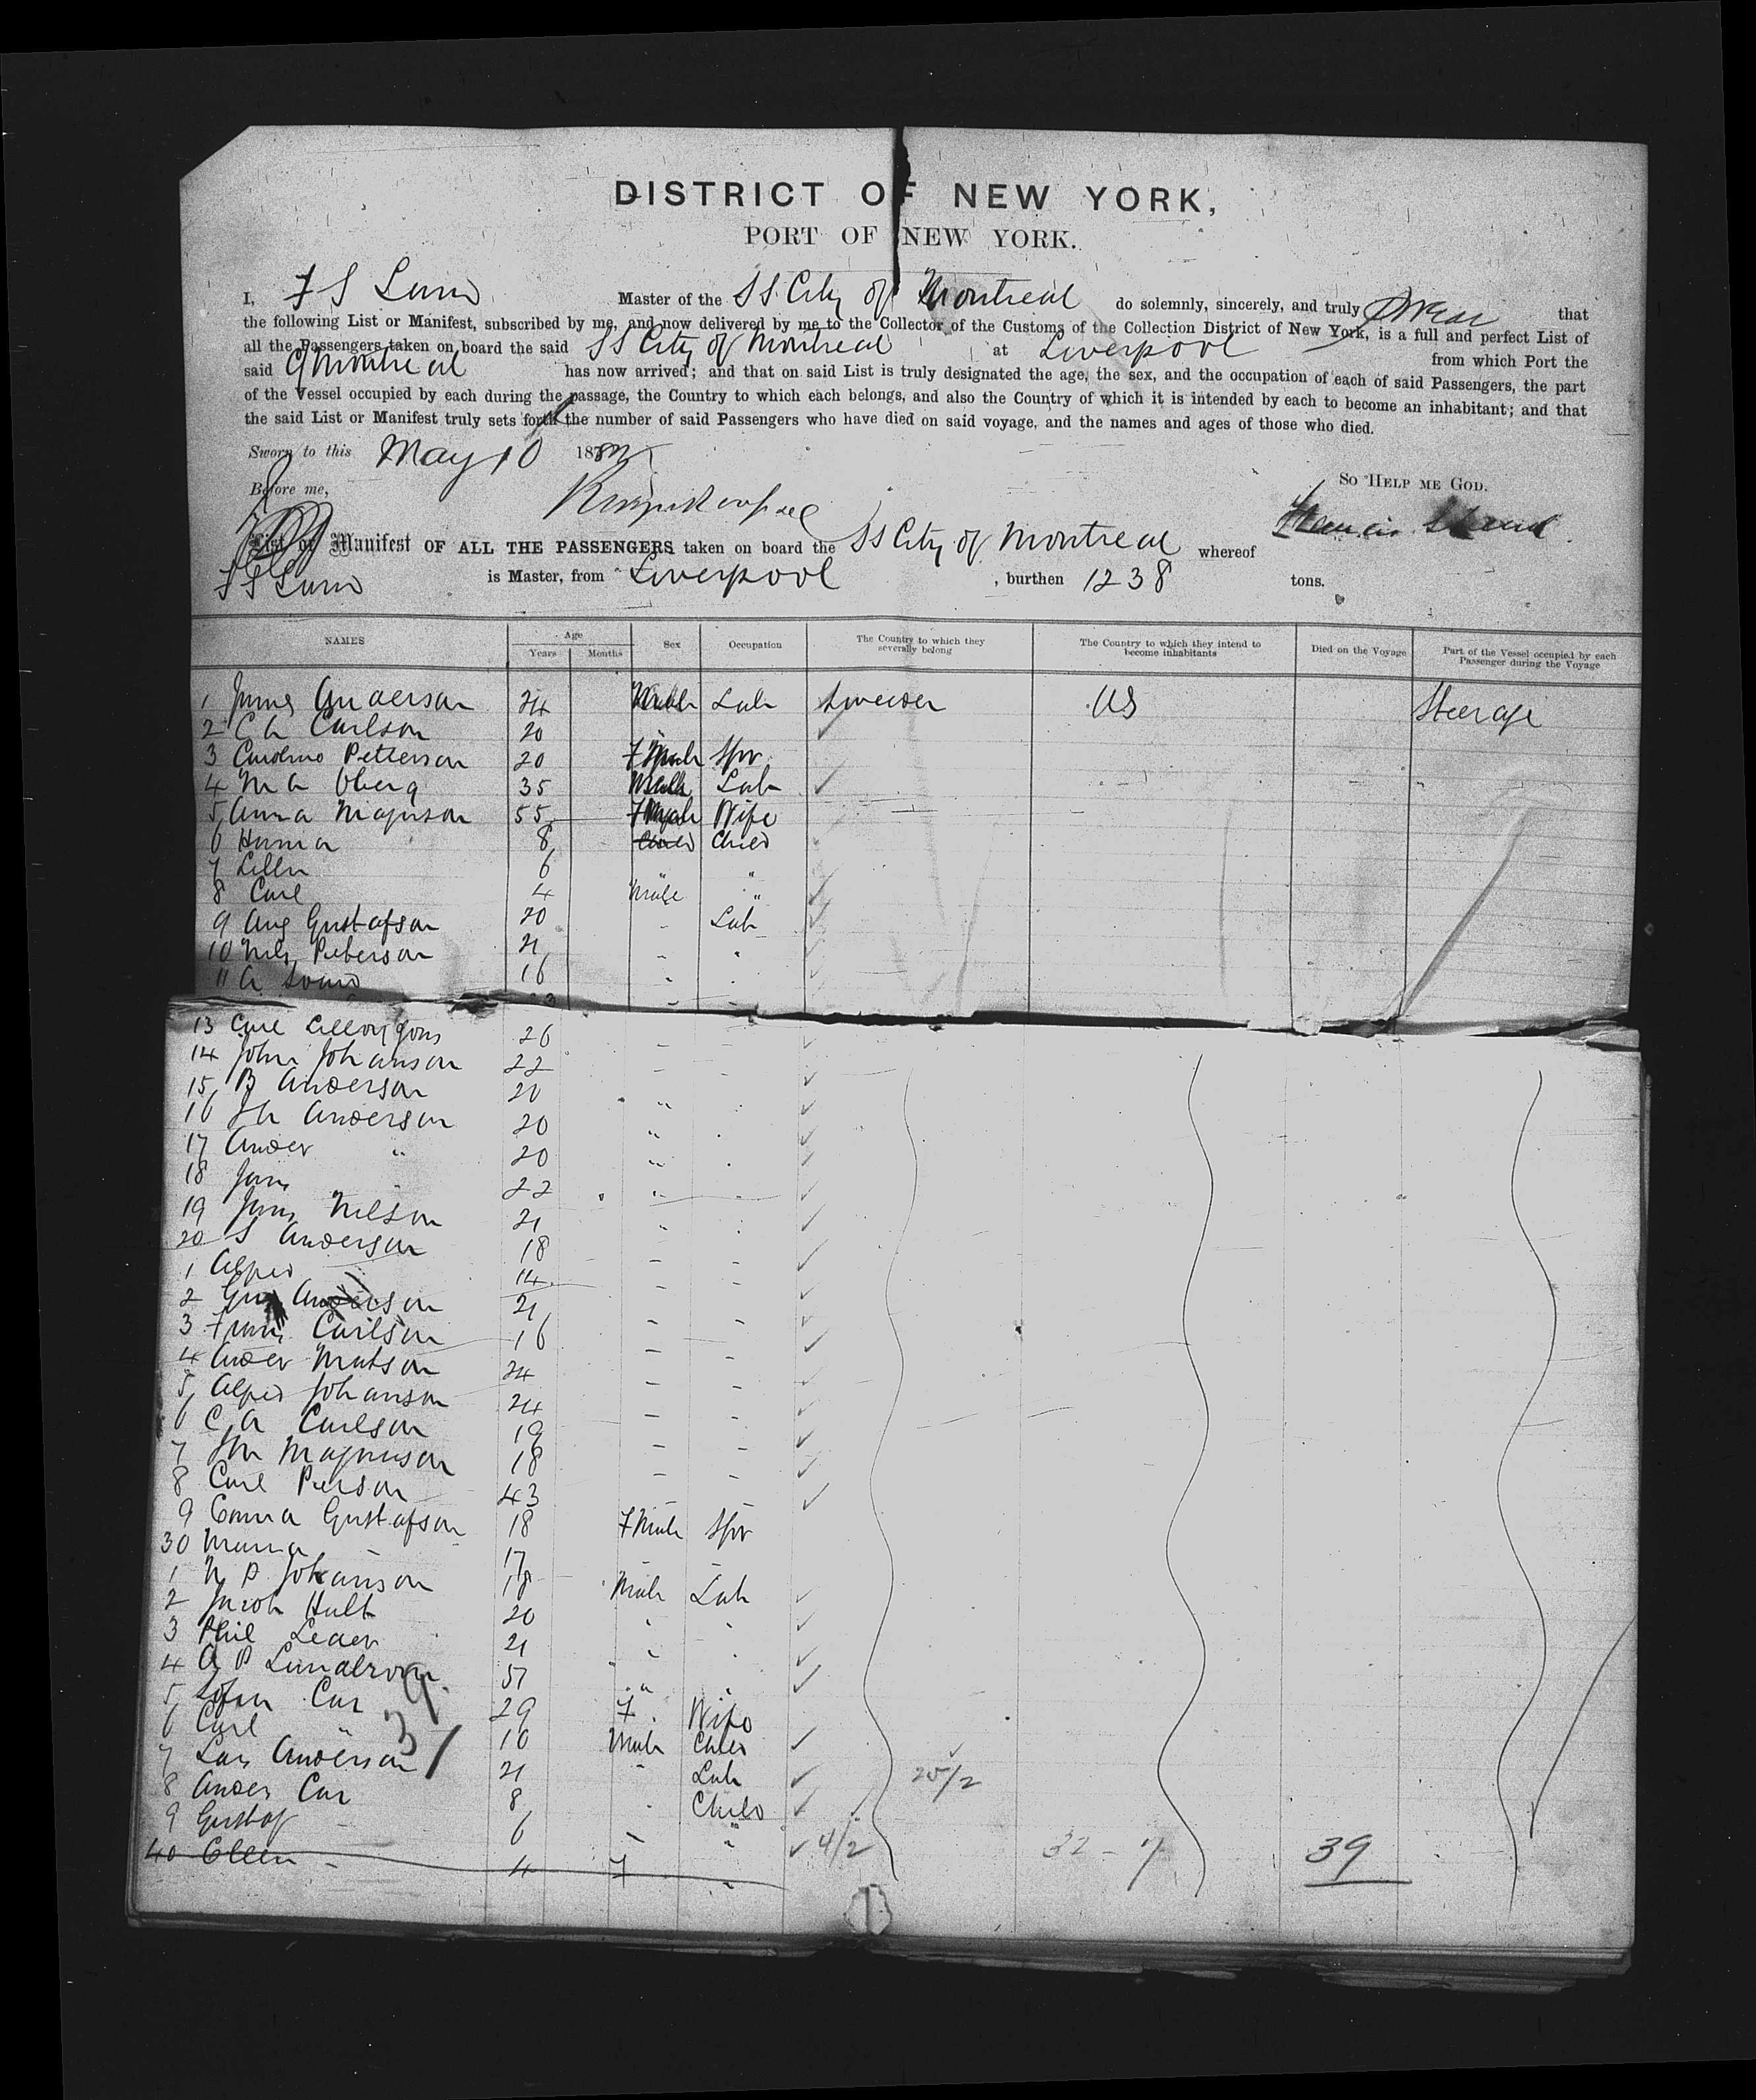 DISTRICT OF NEW YORK,
PORT OF NEW YORK.
I, F S Land Master of the SS City of Montreal do solemnly, sincerely, and truly swear that
the following List or Manifest, subscribed by me, and now delivered by me to the Collector of the Customs of the Collection District of New York, is a full and perfect List of
all the Passengers taken on board the said SS City of Montreal at Liverpool from which Port the
said C Montreal has now arrived; and that on said List is truly designated the age, the sex, and the occupation of each of said Passengers, the part
of the Vessel occupied by each during the passage, the Country to which each belongs, and also the Country of which it is intended by each to become an inhabitant; and that
the said List or Manifest truly sets forth the number of said Passengers who have died on said voyage, and the names and ages of those who died.
Sworn to this May 10 188
So HELP ME GOD.
Before me,
Francis S Land
List or Manifest OF ALL THE PASSENGERS taken on board the SS City of Montreal whereof
F S Land is Master, from Liverpool, burthen 1238 tons.
NAMES Age Years Months Sex Occupation The Country to which they severally belong The Country to which they intend to become inhabitants Died on the Voyage Part of the Vessel occupied by each Passenger during the Voyage
1 Anderson 24 Male Lab Sweden US Steerage
2 C A Carlson 20
3 Carolina Petterson 20 Fmale Spr
4 M A Oberg 35 Male Lab
5 Anna Magnuson 55 Fmale Wife
6 Hanna 8 Child Child
7 Lilln 6 "
8 Carl 4 Male "
9 Aug Gustafson 20 - Lab
10 Nils Peterson 21 - "
11 A 16 - -
13 Carl 26 -
14 John Johanson 22 - -
15 B Anderson 20 " -
16 Anderson 20 " -
17 Ander " 20 " -
18 Jans 22 " -
19 Jans Nelson 21 " -
20 S Anderson 18 - -
1 Alfred 14 - -
2 Gus Anderson 21 - -
3 Frans Carlson 16 - -
4 Ander Matson 24 - -
5 Alfred Johanson 24 - -
6 C A Carlson 19 - -
7 Magnuson 18 - -
8 Carl Pierson 43 - -
9 Emma Gustafson 18 Fmale Spr
30 Maria - 17 -
1 N P Johanson 18 Male Lab
2 Jacob Hult 20 " "
3 Phil Leder 21 " "
4 A P 51 " "
5 Car 29 F. Wife
6 Carl " 10 Male Child
7 Lars Anderson 21 - Lab
25/2
8 Ander Car 8 - Child
9 Gustaf - 6 - "
4/2 32 - 7 39
40 Ellen - 4 F "